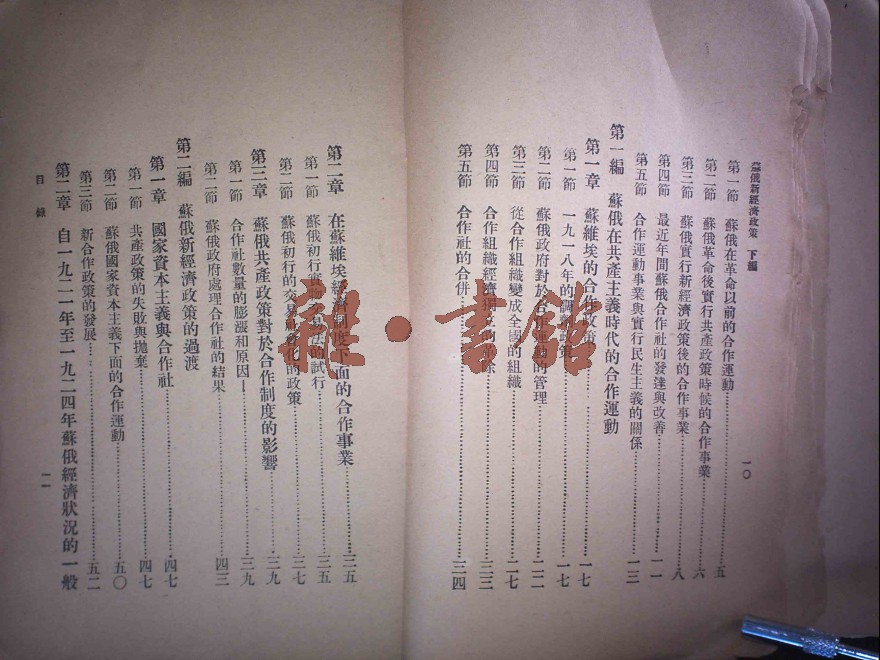 蘇俄新經濟政策 下編
一〇
第一節 蘇俄在革命以前的合作運動……五
第二節 蘇俄革命後實行共產政策時候的合作事業……六
第三節 蘇俄實行新經濟政策後的合作事業……八
第四節 最近年間蘇俄合作社的發達與改善……一一
第五節 合作運動事業與實行民生主義的關係……一三
第一編 蘇俄在共產主義時代的合作運動
第一章 蘇維埃的合作政策……一七
第一節 一九一八年的調劑政策……一七
第二節 蘇俄政府對於合作運動的管理……二二
第三節 從合作組織變成全國的組織……二七
第四節 合作組織經濟獨立的革除……三三
第五節 合作社的合併……三四
第二章 在蘇維埃經濟制度下面的合作事業……三五
第一節 蘇俄初行實物交易法的試行……三五
第二節 蘇俄初行的交易社會化的政策……三七
第三章 蘇俄共產政策對於合作制度的影響……三九
第一節 合作社數量的膨漲和原因……三九
第二節 蘇俄政府處理合作社的結果……四三
第二編 蘇俄新經濟政策的過渡
第一章 國家資本主義與合作社……四七
第一節 共產政策的失敗與拋棄……四七
第二節 蘇俄國家資本主義下面的合作運動……五〇
第三節 新合作政策的發展……五二
第二章 自一九二一年至一九二四年蘇俄經濟狀況的一般
目錄
一一
書館